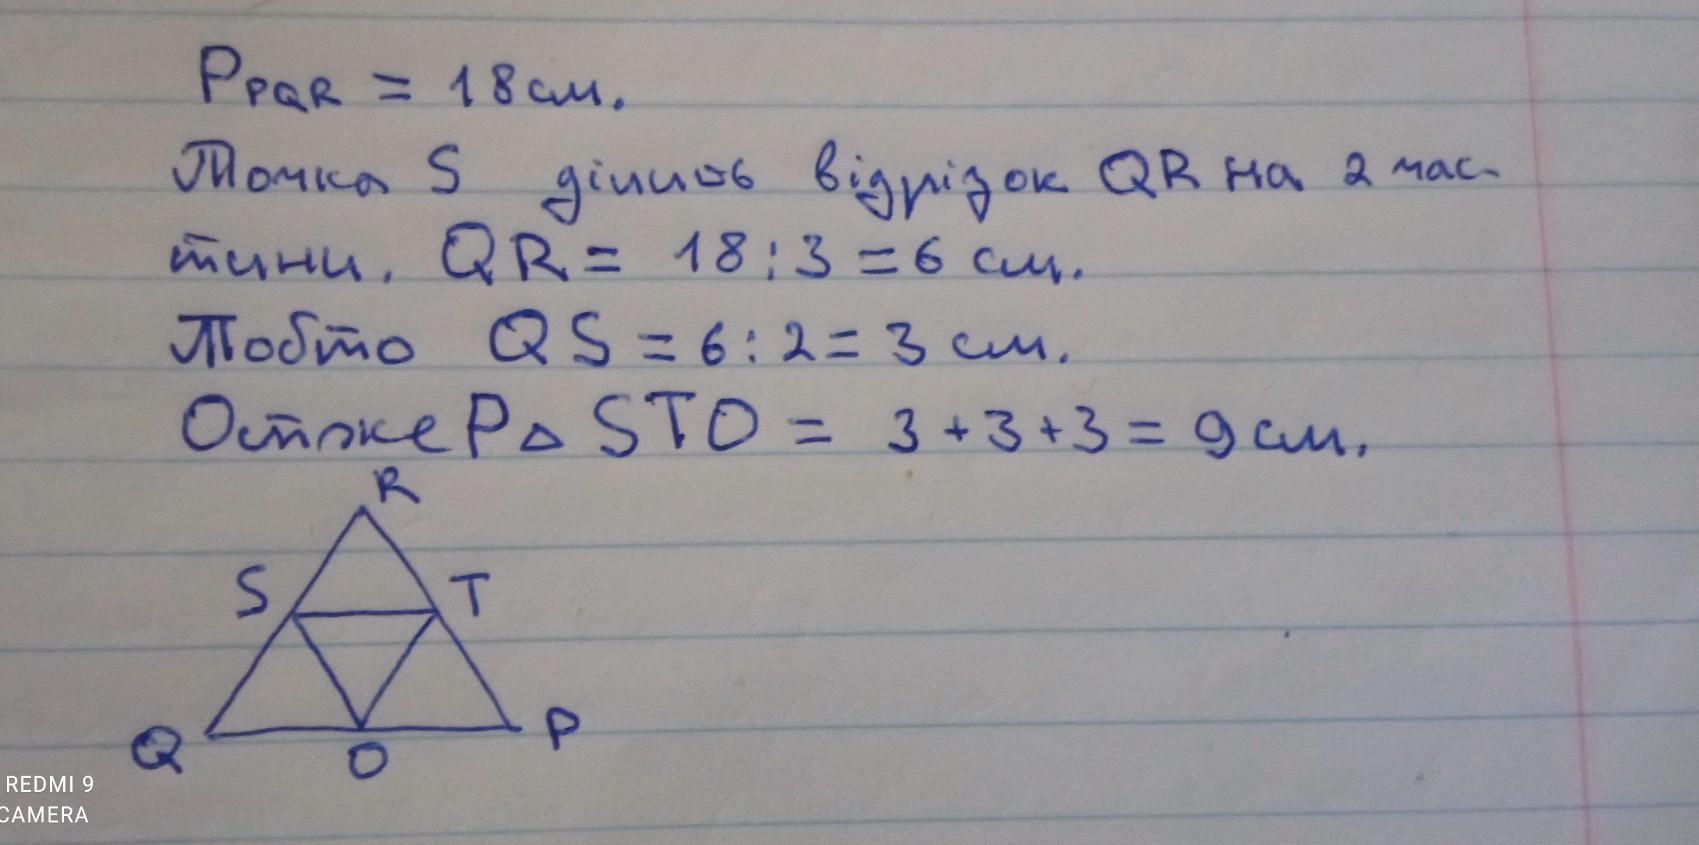 P PQR = 18 см.
Точка S ділить відрізок QR на 2 час-
тини. QR = 18 : 3 = 6 см.
Тобто QS = 6 : 2 = 3 см.
Остже P△ STO = 3 + 3 + 3 = 9 см.
R
S T
Q O P
REDMI 9
CAMERA